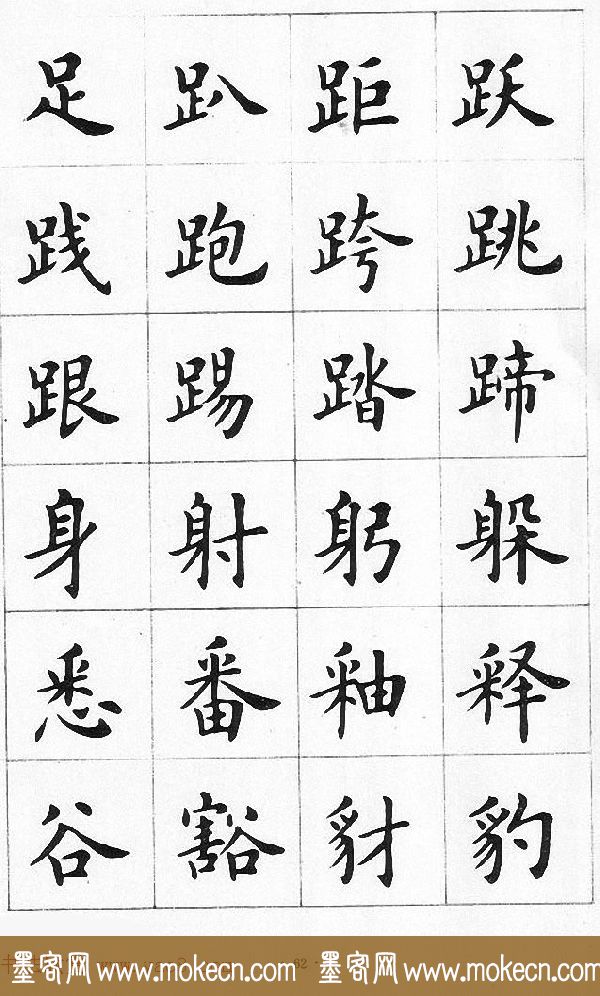 足 趴 距 跃
践 跑 跨 跳
跟 踢 踏 蹄
身 射 躬 躲
悉 番 釉 释
谷 豁 豺 豹
墨客网 www.mokecn.com 墨客网 www.mokecn.com